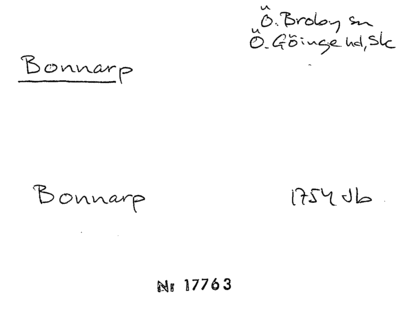 Ö. Broby sn
Ö. Göinge hd, Sk
Bonnarp
Bonnarp 1754 Jb
Nr 17763